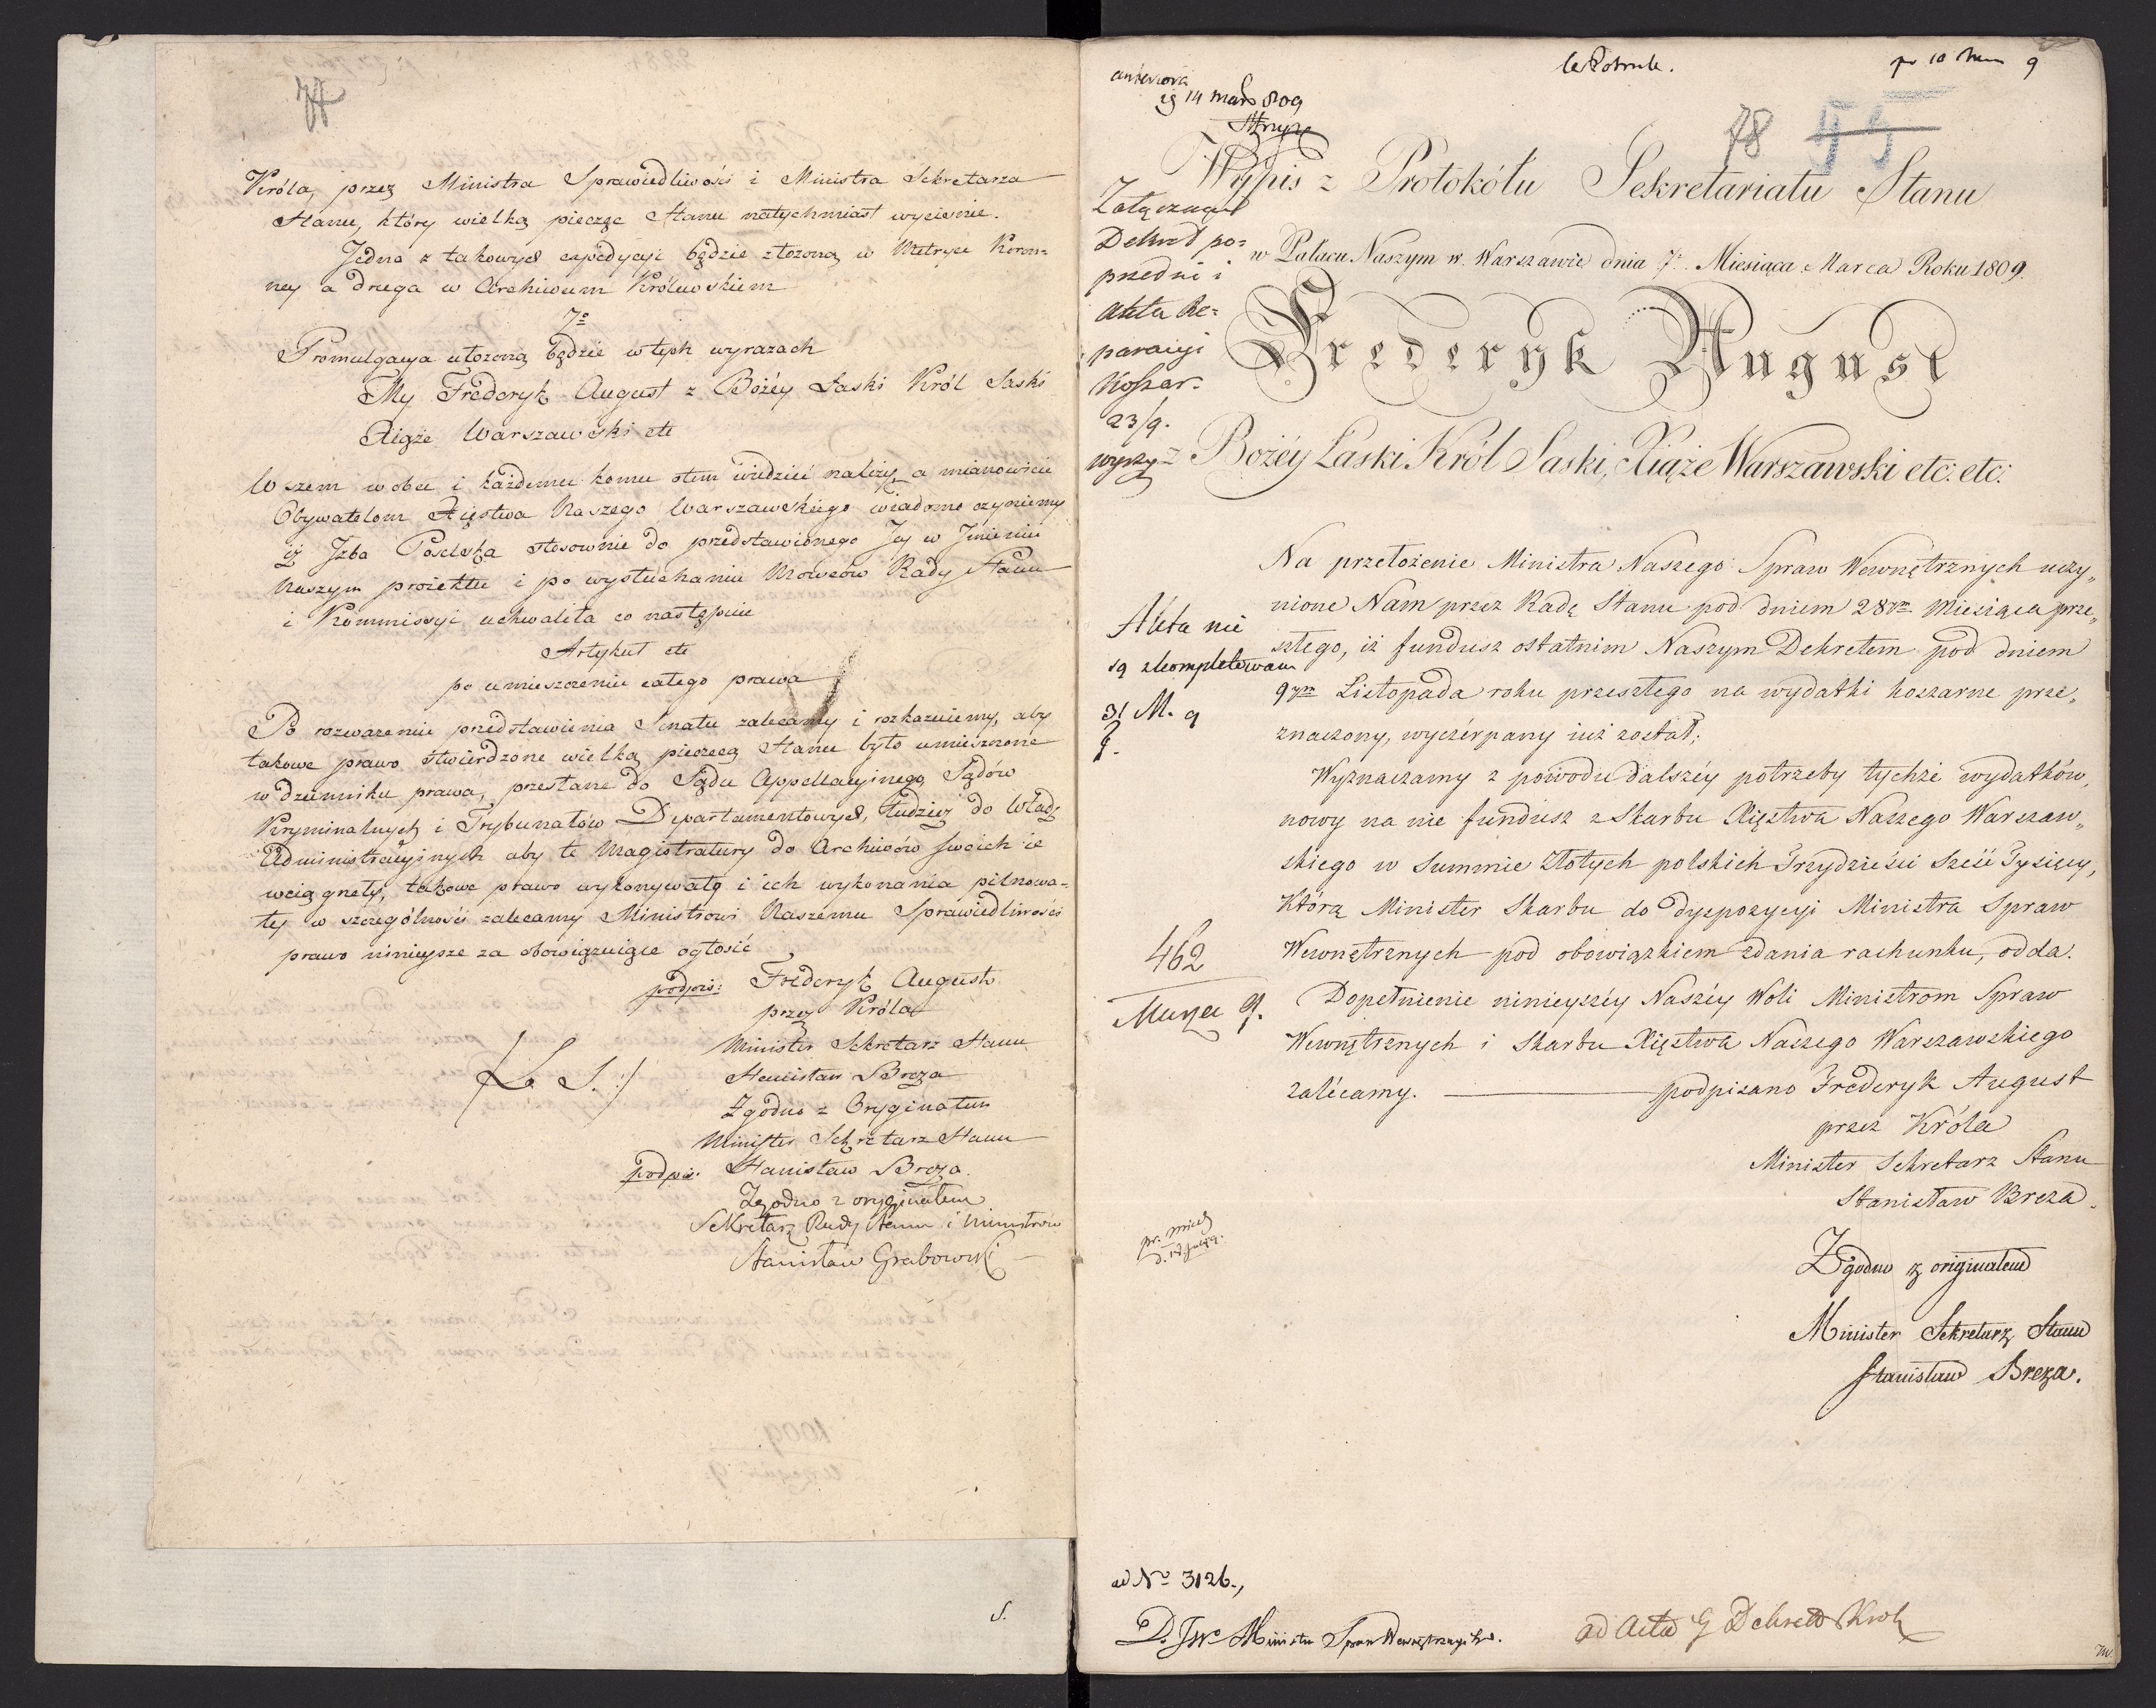 77
Króla, przez Ministra Sprawiedliwości i Ministra Sekretarza
Stanu, który wielką pieczęc Stanu natychmiast wyciśnie.
Jedna z takowych expedycyi będzie złożoną w Metryce Koron=
ney a druga w Archiwum Królewskiem
7º
Promulgacya ułożoną będzie w tych wyrazach
My Frederyk August z Bożéy Łaski Król Saski
Xiąże Warszawski etc
Wszem wobec i każdemu komu otem wiedzieć należy, a mianowicie
Obywatelom Xięstwa Naszego Warszawskiego wiadomo czyniemy
iż Jzba Poselska stosownie do przedstawionego Jey w Jmieniu
Naszym proiektu i po wysłuchaniu Mowców Rady Stanu
i Kommissyi uchwaliła co następuie
Artykuł etc
po umieszczeniu całego prawa
Po rozważeniu przedstawienia Senatu zalecamy i rozkazuiemy, aby
takowe prawo stwierdzone wielką pieczęcą Stanu było umieszczone
w dzienniku prawa, przesłane do Sądu Appellacyinego, Sądów
Kryminalnych i Trybunałów Departamentowych, tudzież do Władz
Administracyinych aby te Magistratury do Archiwów swoich ie
wciągnęły, takowe prawo wykonywały i ich wykonania pilnowa=
ły w szczególności zalecamy Ministrowi Naszemu Sprawiedliwości
prawo ninieysze za obowiązuiące ogłosić
podpis: Frederyk August
przez Króla
Minister Sekretarz Stanu
(L. S.:) Stanisław Breza
Zgodno z Oryginałem
Minister Sekretarz Stanu
podpis: Stanisław Breza.
Zgodno z oryginałem
Sekretarz Rady Stanu i Ministrów
Stanisław Grabowski
S.
14 mars 809
78
Wypis z Protokółu Sekretariatu Stanu
w Pałacu Naszym w Warszawie dnia 7º Miesiąca Marca Roku 1809.
Frederyk August
z Bożéy Łaski Król Saski, Xiąże Warszawski etc: etc:
Dekret po=
przedni i
akta Re=
paracyi
Koszar.
23/9.
Na przełożenie Ministra Naszego Spraw Wewnętrznych uczy„
nione Nam przez Radę Stanu pod dniem 28ym Miesiąca prze„
szłego, iż fundusz ostatnim Naszym Dekretem pod dniem
9ym Listopada roku przeszłego na wydatki koszarne prze„
znaczony, wyczérpany iuż został;
Akta nie
są skompletowane
31 M. 9
Wyznaczamy z powodu dalszéy potrzeby tychże wydatków,
nowy na nie fundusz z Skarbu Xięztwa Naszego Warszaw„
skiego w Summie Złotych polskich Trzydzieści Sześć Tysięcy,
Którą Minister Skarbu do dyspozycyi Ministra Spraw
Wewnętrznych pod obowiązkiem zdania rachunku, odda.
462
Marca 9.
Dopełnienie ninieyszéy Naszéy Woli Ministrom Spraw
Wewnętrznych i Skarbu Xięztwa Naszego Warszawskiego
zalécamy. podpisano Frederyk August
przez Króla
Minister Sekretarz Stanu
Stanisław Breza.
Zgodno z originałem
Minister Sekretarz Stanu
Stanisław Breza.
ad Nº 3126.,
Do JWo Ministra Spraw Wewnętrznych.
ad Acta G Dekretów Król